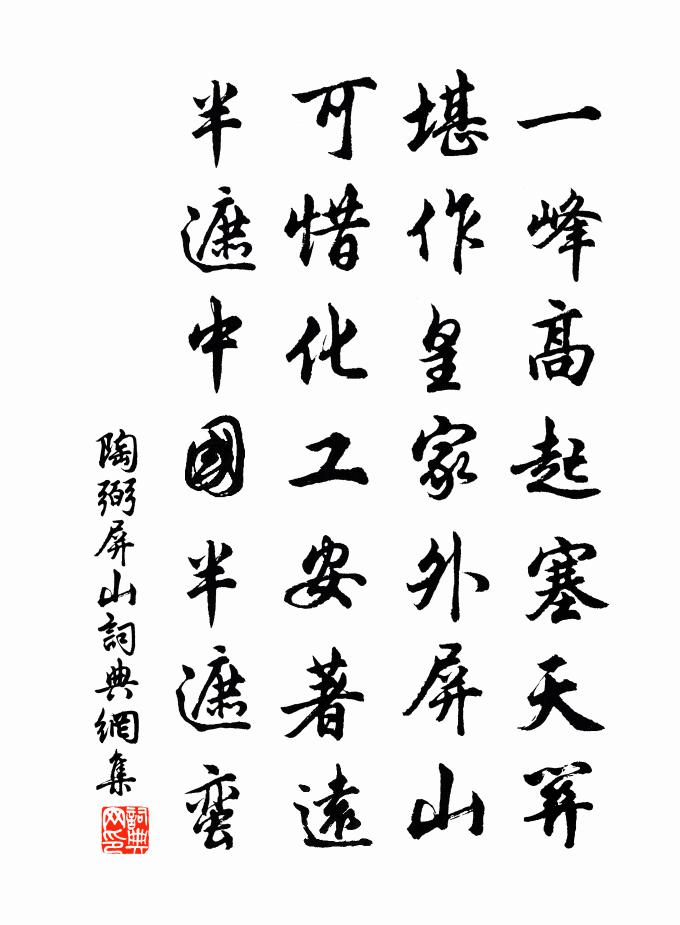 一峰高起塞天關
堪作皇家外屏山
可惜化工安著遠
半遮中國半遮蠻
陶弼屏山詞典網集
詞典網印